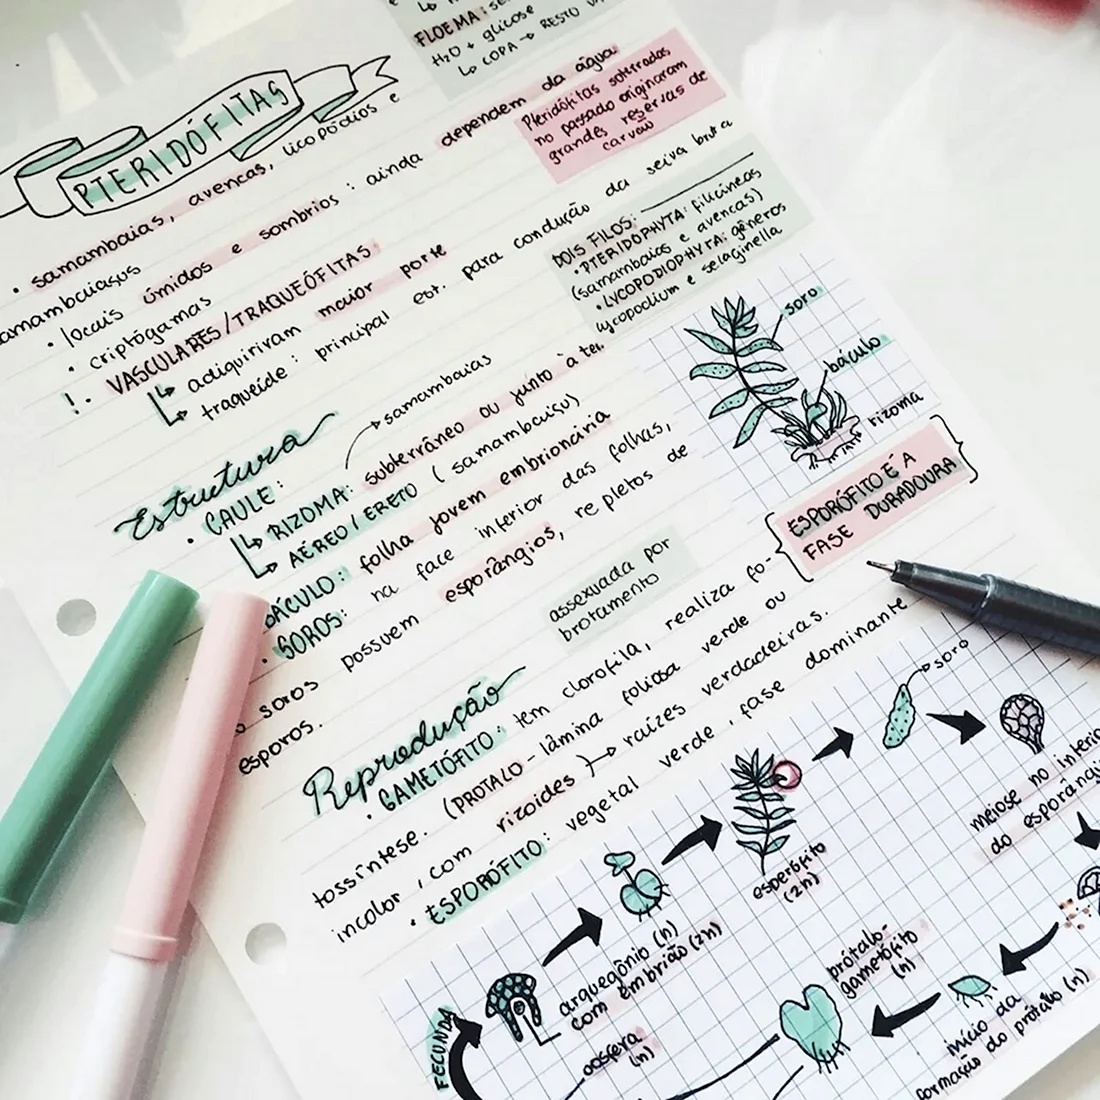 FLOEMA: se
H₂O + glicose
↳ COPA → RESTO
PTERIDÓFITAS
• samambaias, avencas, licopódios e
samambaiaçus
• locais úmidos e sombrios : ainda dependem da água
• criptógamas
!. VASCULARES/TRAQUEÓFITAS
↳ adiquiriram maior porte
↳ traqueíde: principal est. para condução da seiva bruta
Pteridófitas soterradas
no passado originaram
grandes reservas de
carvão
DOIS FILOS:
• PTERIDOPHYTA: filicíneas
(samambaias e avencas)
• LYCOPODIOPHYTA: gêneros
lycopodium e selaginella
soro
báculo
rizoma
Estrutura
• CAULE: → samambaias
↳ RIZOMA: subterrâneo ou junto à ter.
↳ AÉREO/ERETO (samambaiaçu)
BÁCULO: folha jovem embrionária
• SOROS: na face inferior das folhas,
soros possuem esporângios, repletos de
esporos.
ESPORÓFITO É A
FASE DURADOURA
assexuada por
brotamento
Reprodução
• GAMETÓFITO: tem clorofila, realiza fo-
tossíntese. (PROTALO - lâmina foliosa verde ou
incolor, com rizoides) → raízes verdadeiras.
• ESPORÓFITO: vegetal verde, fase dominante
soro
meiose no interior
do esporângio
esperófito
(2n)
arquegônio (n)
com embrião (2n)
FECUNDA
oosfera
(n)
prótalo-
gametófito
(n)
início da
formação do prótalo (n)